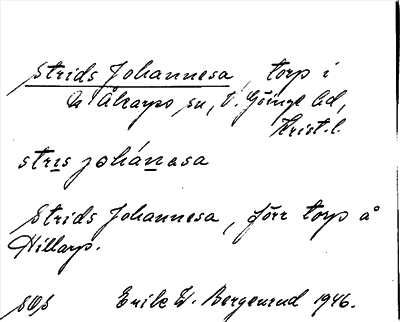 Strids Johannesa, torp i
N Åkarps sn, V. Göinge hd,
Krist. l.
stris johánasa
Strids Johannesa, förr torp å
Hillarp.
Erik W. Bergenrud 1946.